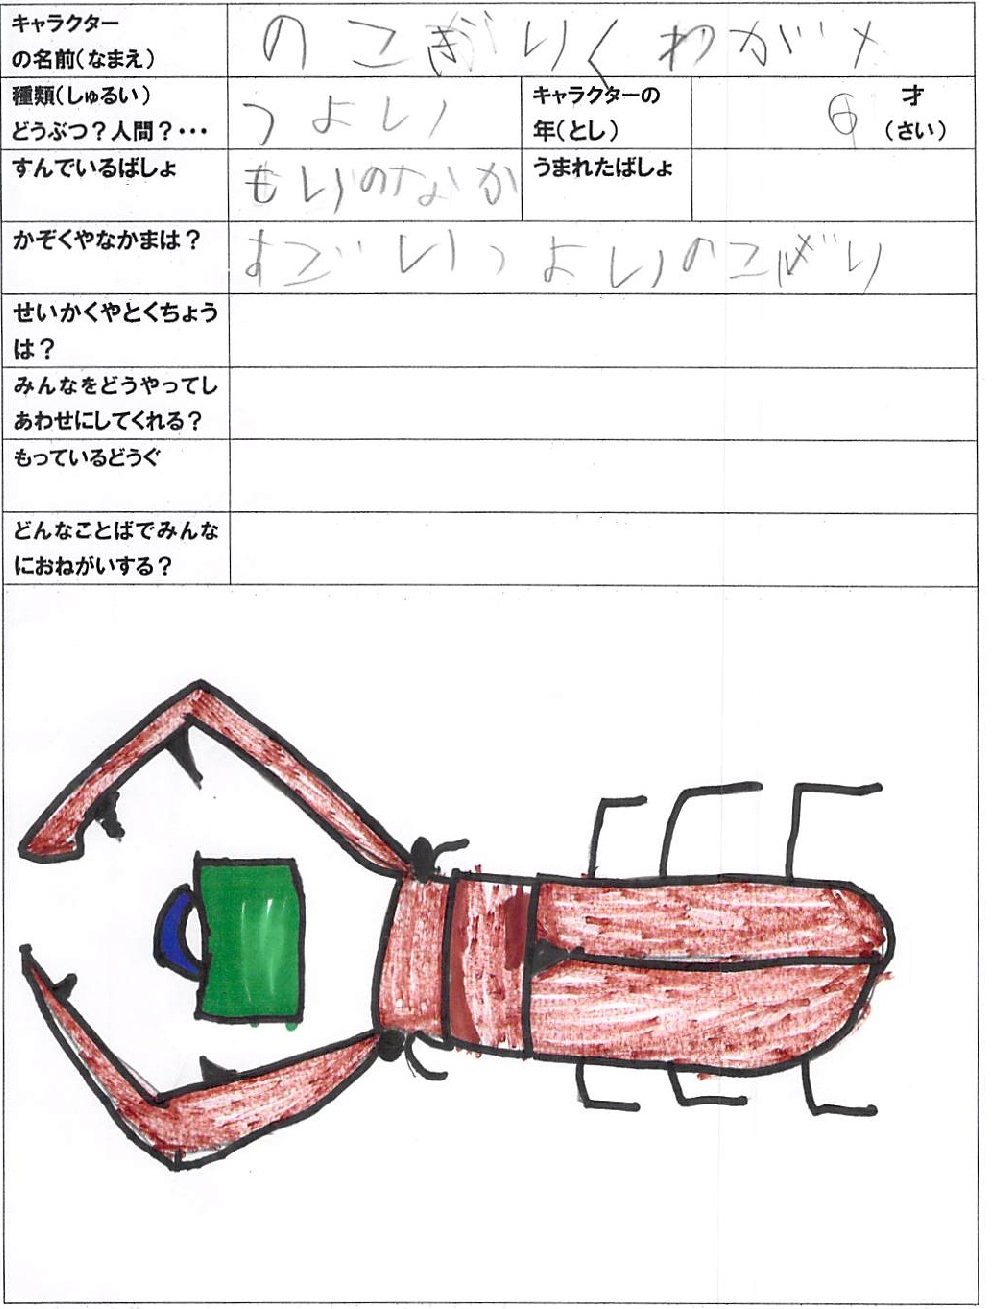 キャラクター
の名前(なまえ)
のこぎりくわがた
種類(しゅるい)
どうぶつ?人間?・・・
つよい
キャラクターの
年(とし)
才
(さい)
すんでいるばしょ
もりのなか
うまれたばしょ
かぞくやなかまは?
すごいつよいのこぎり
せいかくやとくちょう
は?
みんなをどうやってし
あわせにしてくれる?
もっているどうぐ
どんなことばでみんな
におねがいする?